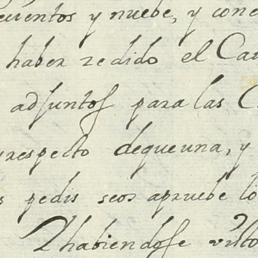 cientos y nuebe, y con
haber zedido el Ca
adjuntos para las C
respecto deque una, y
s pedis seos apruebe lo
Y habiendose visto